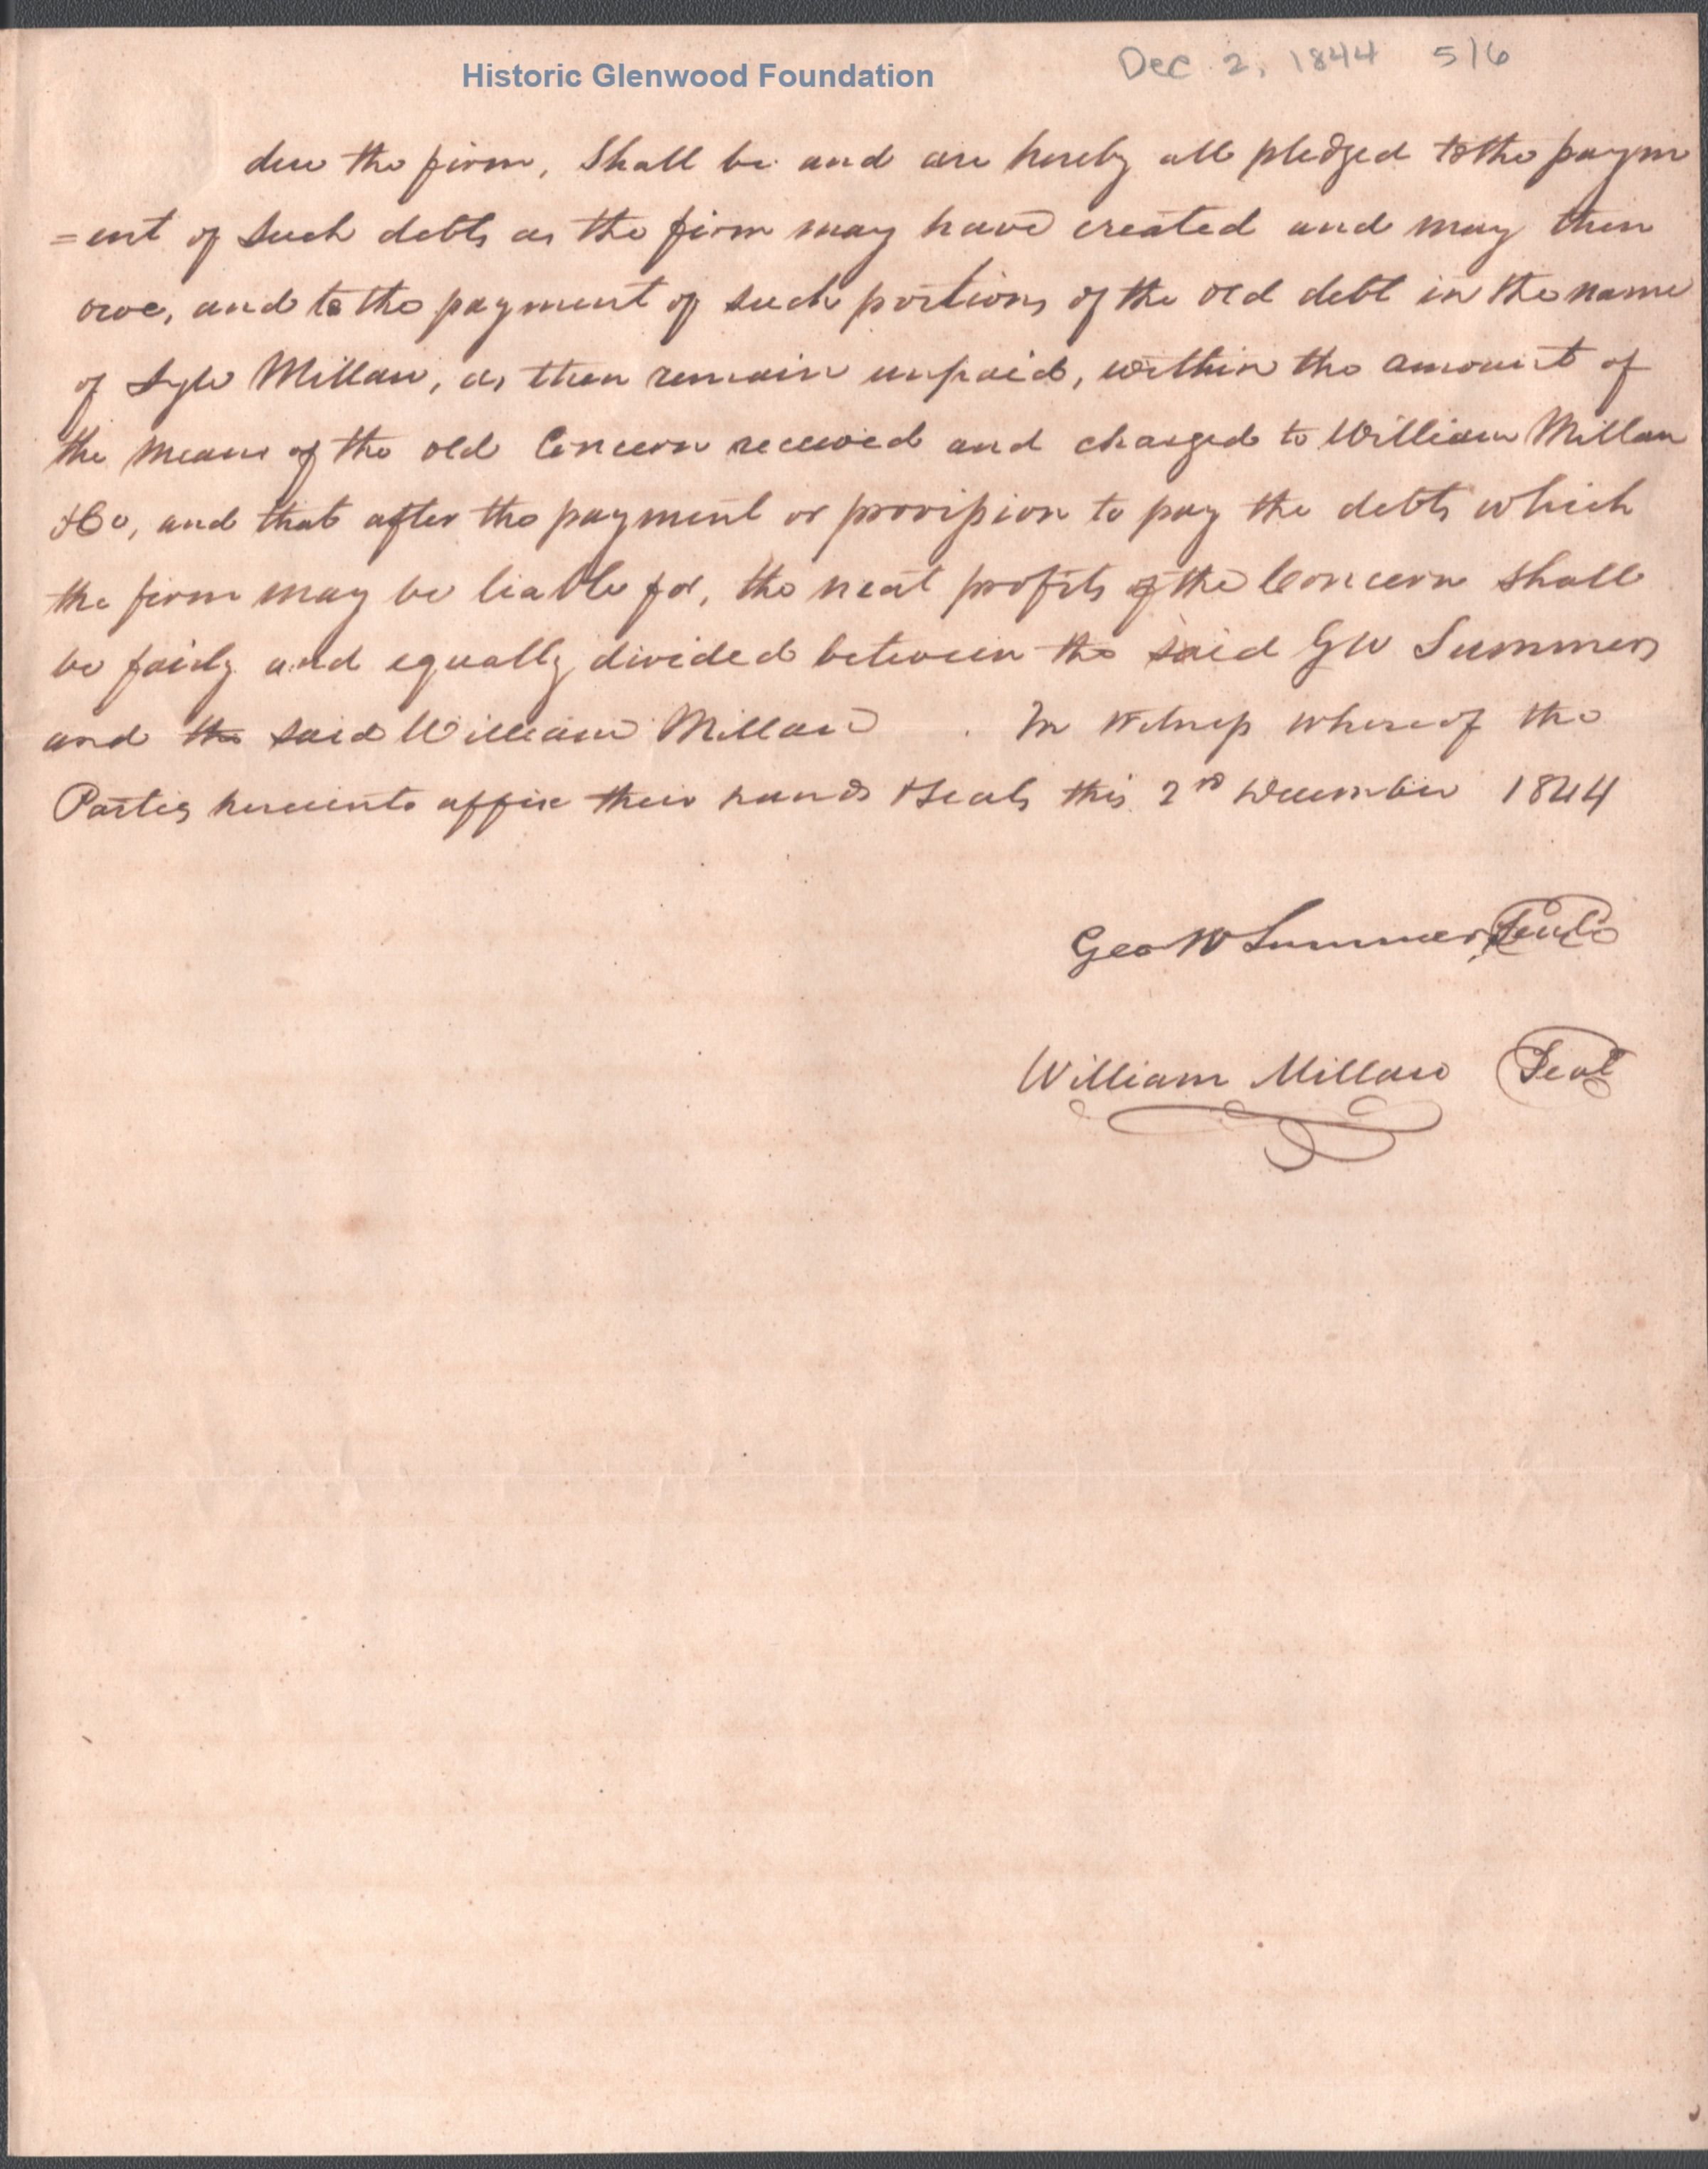 Historic Glenwood Foundation
Dec 2, 1844 516
due the firm, Shall be and are hereby all pledged to the paym
=ent of Such debts as the firm may have created and may then
owe, and to the payment of such portions of the old debt in the name
of Lyle Millan, as then remain unpaid, within the amount of
the means of the old Concern received and charged to William Millan
&Co, and that after the payment or provision to pay the debts which
the firm may be liable for, the neat profits of the Concern shall
be fairly and equally divided between the said GW Summers
and the said William Millan . In Witness whereof the
Parties hereunto affix their hands & Seals this 2nd December 1844
Geo W Summers Seal
William Millan Seal